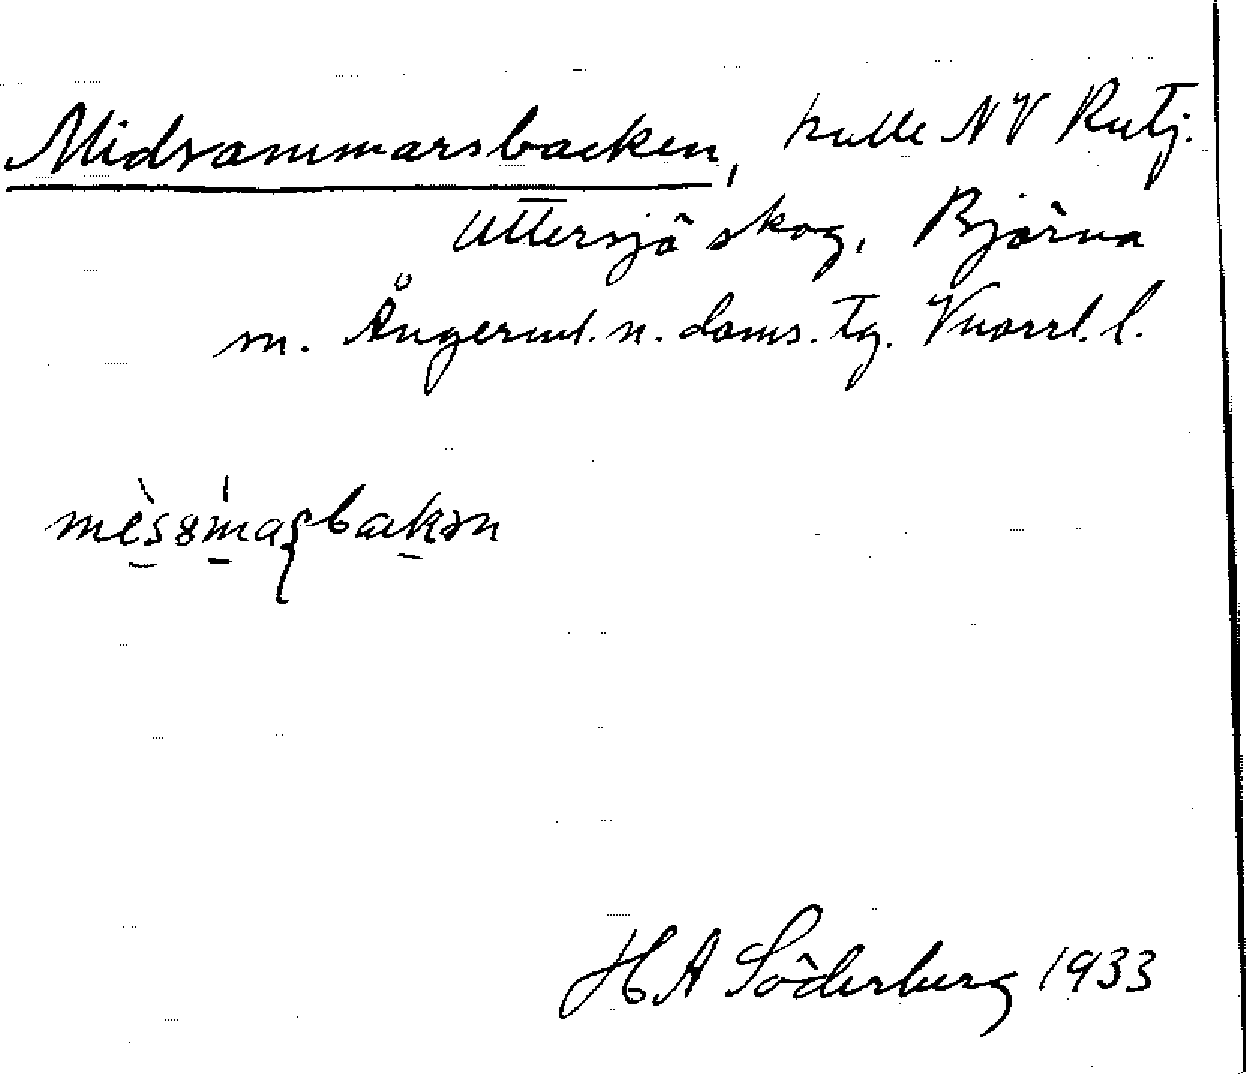 Midsommarsbacken, kulle NV Rutj.
Uttersjö skog, Björna
m. Ångerml. n. doms. tg. Vnorrl. l.
H A Söderberg 1933